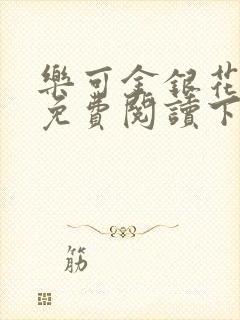 樂可金銀花
免費閱讀下
筋